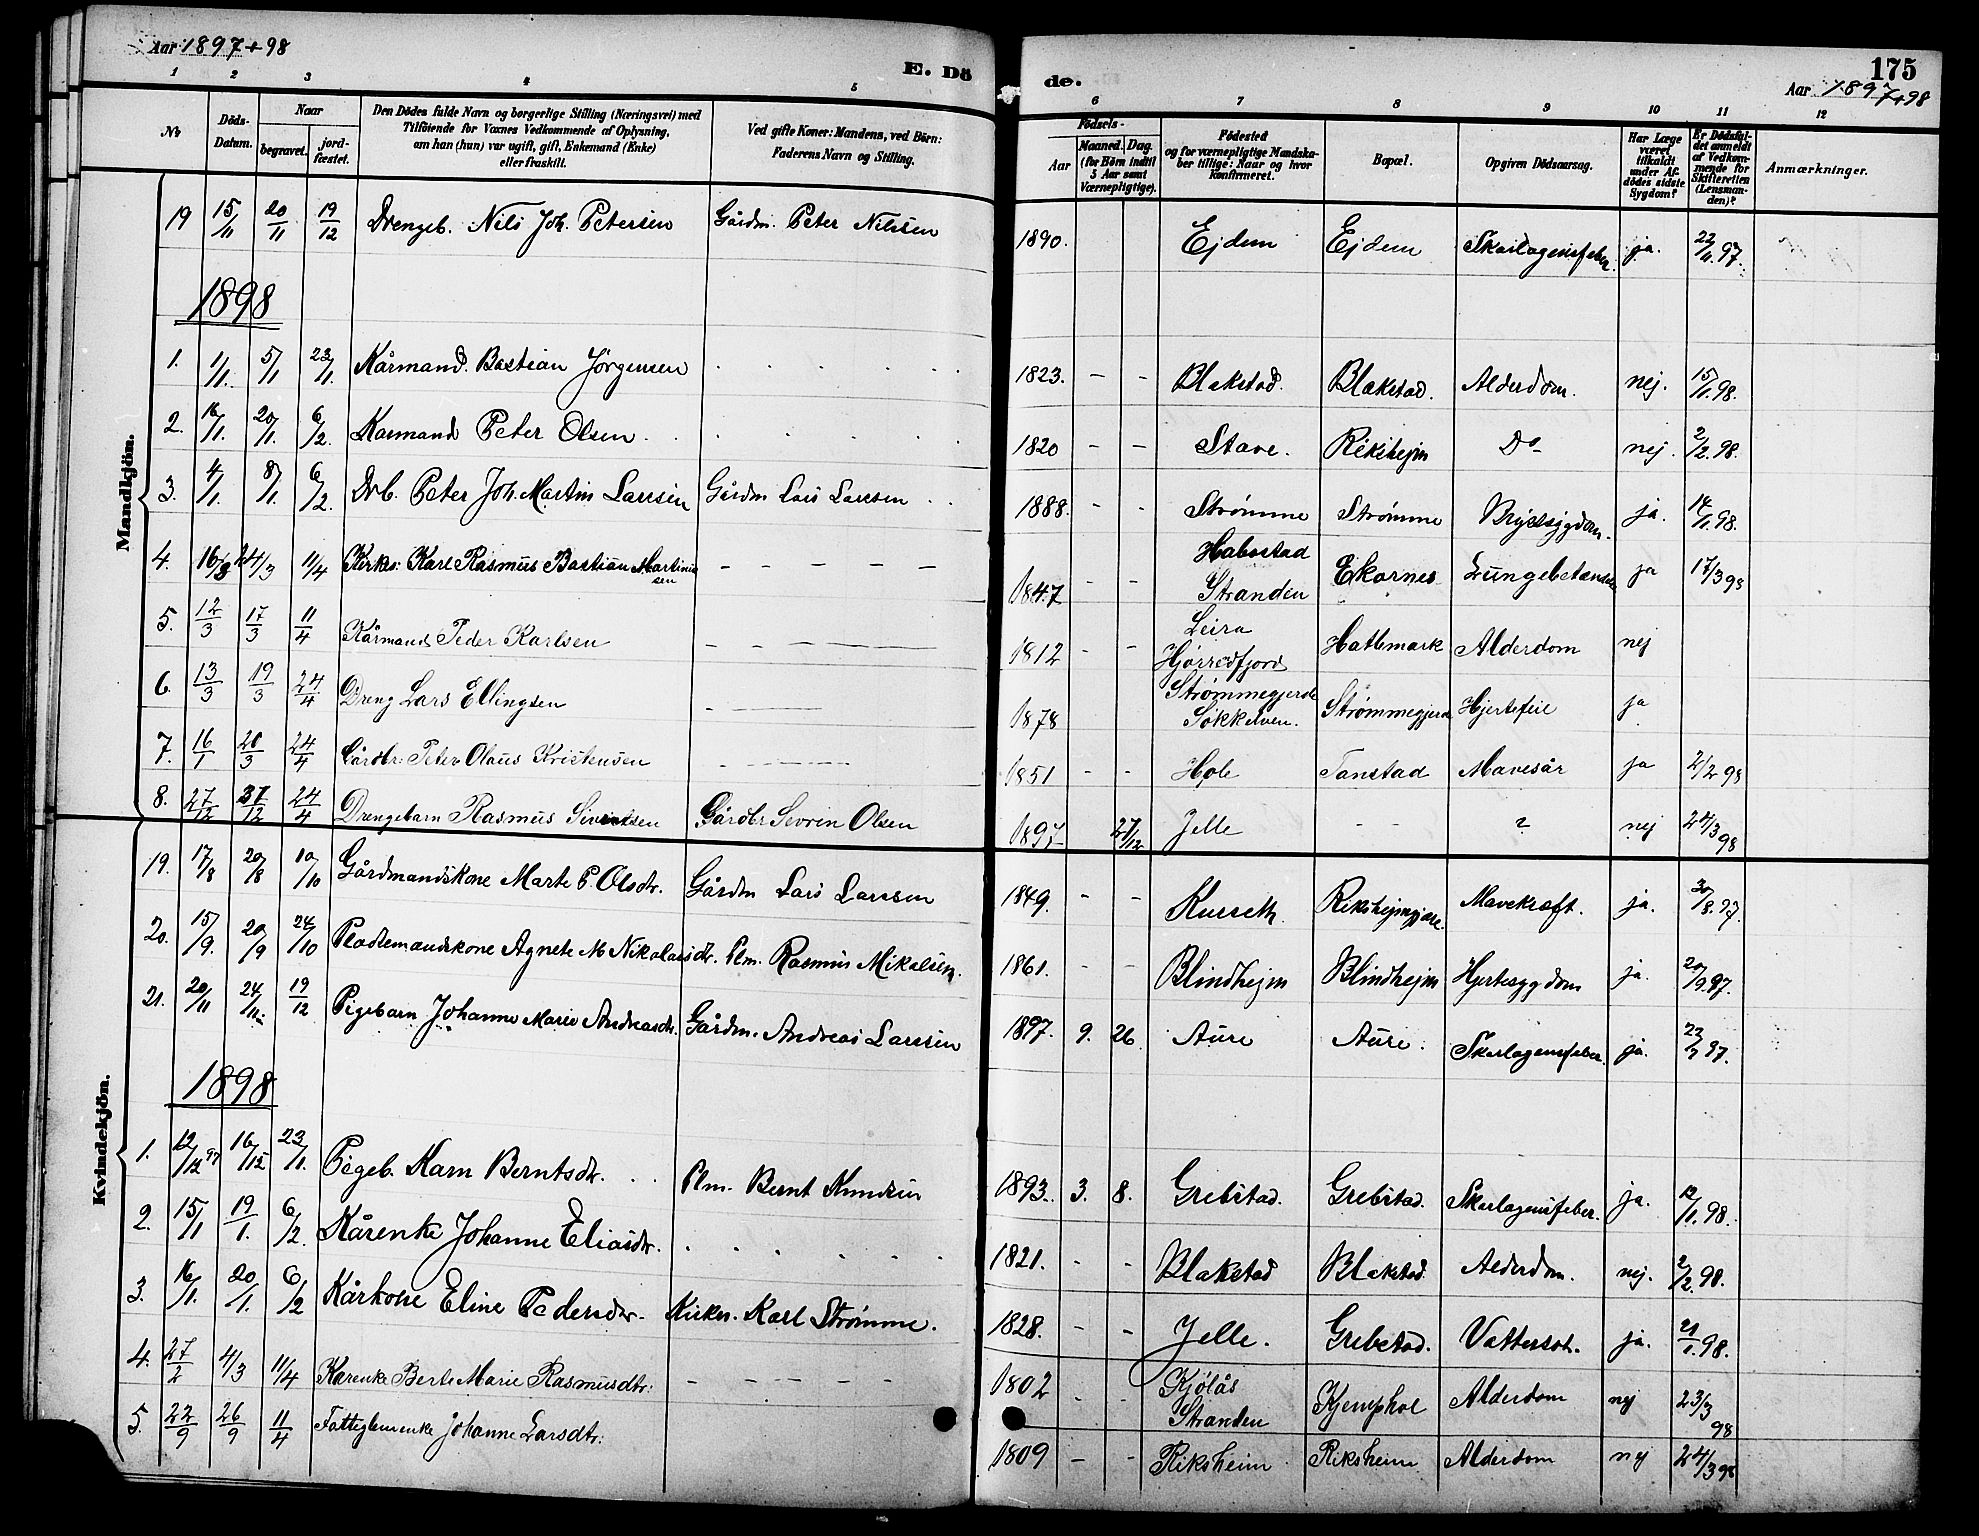 Aar 1897+98
E. Dö
de.
175
Aar 1897+98
1 2 3 4 5 6 7 8 9 10 11 12
No
Döds-Datum.
Naar
begravet.
jord-fæstet.
Den Dödes fulde Navn og borgerlige Stilling (Næringsvei) med
Tilföiende for Voxnes Vedkommende af Oplysning,
om han (hun) var ugift, gift, Enkemand (Enke)
eller fraskilt.
Ved gifte Koner: Mandens, ved Börn:
Faderens Navn og Stilling.
Födsels-
Aar
Maaned. Dag.
(for Börn indtil
5 Aar samt
Værnepligtige).
Födested
og for værnepligtige Mandska-
ber tillige: Naar og hvor
konfirmeret.
Bopæl.
Opgiven Dödsaarsag.
Har Læge
været
tilkaldt
under Af-
dödes sidste
Sygdom?
Er Dödsfal-
det anmeldt
af Vedkom-
mende for
Skifteretten
(Lensman-
den)?
Anmærkninger.
Mandkjön.
19 15/11 20/11 19/12 Drengeb. Nils Joh. Petersen Gårdm. Peter Nilssen 1890. Ejdem Ejdem Skarlagensfeber. ja. 22/11.97.
1898
1. 1/1. 5/1 23/1. Kårmand. Bastian Jørgensen 1823. - - Blakstad. Blakstad. Alderdom. nej. 15/1.98.
2. 16/1. 20/1. 6/2. Karmand Peter Olsen. 1820 - - Stave. Rikshejm Do nej. 2/2.98.
3. 4/1. 8/1. 6/2. Drb. Peter Joh. Martin Larssen Gårdm Lars Larssen 1888. - - Strømme Strømme Brystsygdom. ja. 14/1.98.
4. 16/3 24/3 11/4 Kirkes: Karl Rasmus Bastian Martinussen - - - - - 1847 - - Habostad Stranden Ekornes Lungebetændelse ja 17/3 98
5. 12/3 17/3 11/4 Kårmand Peder Karlsen 1812 - - Leira Hjørredfjord Hatlemark Alderdom nej
6. 13/3 19/3 24/4 Dreng Lars Ellingsen 1878 Strømmegjerde Søkkelven. Strømmegjerde Hjertefeil ja
7. 16/1 20/3 24/4 Gårdbr: Peter Olaus Kristensen 1851 - - Hole Tanstad Mavesår ja 2/2 98
8. 27/12 31/12 24/4 Drengebarn Rasmus Sivertsen Gårdbr Sevrin Olsen 1897 27/12 Jelle - - ? nej 24/3 98
Kvindekjön.
19. 17/8 20/8 10/10 Gårdmandskone Marte P. Olsdtr. Gårdm Lars Larssen 1849. - - Kurseth Rikshejmgjære. Mavekræft. ja. 30/8.97.
20. 15/9. 20/9 24/10 Pladsemandskone Agnete M Nikolaisdtr. Plm. Rasmus Mikalsen. 1861. - - Blindhejm Blindhejm Hjertesygdom ja. 20/9.97.
21. 20/11 24/11 19/12 Pigebarn Johanne Marie Andreasdtr. Gårdm. Andreas Larssen 1897. 9. 26. Aure Aure. Skarlagensfeber. ja. 97.
1898
1. 12/12 97 16/12 23/1. Pigeb. Karn Berntsdtr. Plm. Bernt Knudsen 1893. 3. 8. Grebstad. Grebstad. Skarlagensfeber. ja. 12/1.98.
2. 15/1 19/1. 6/2. Kårenke Johanne Eliasdtr. 1821. - - Blakstad Blakstad. Alderdom. nej. 2/2.98.
3. 16/1. 20/1. 6/2 Kårkone Eline Pedersdtr. Kirkes. Karl Strømme. 1828. - - Jelle. Grebstad. Vattersot. ja. 21/1.98.
4. 27/2 4/3 11/4 Karenke Berte Marie Rasmusdtr: - - - - - 1802 - - Kjölås Stranden Kjemphol Alderdom nej 23/3 98
5. 22/9 26/9 11/4 Fattiglemenke Johanne Larsdtr: 1809 - - Riksheim Riksheim Alderdom nej 24/3 98